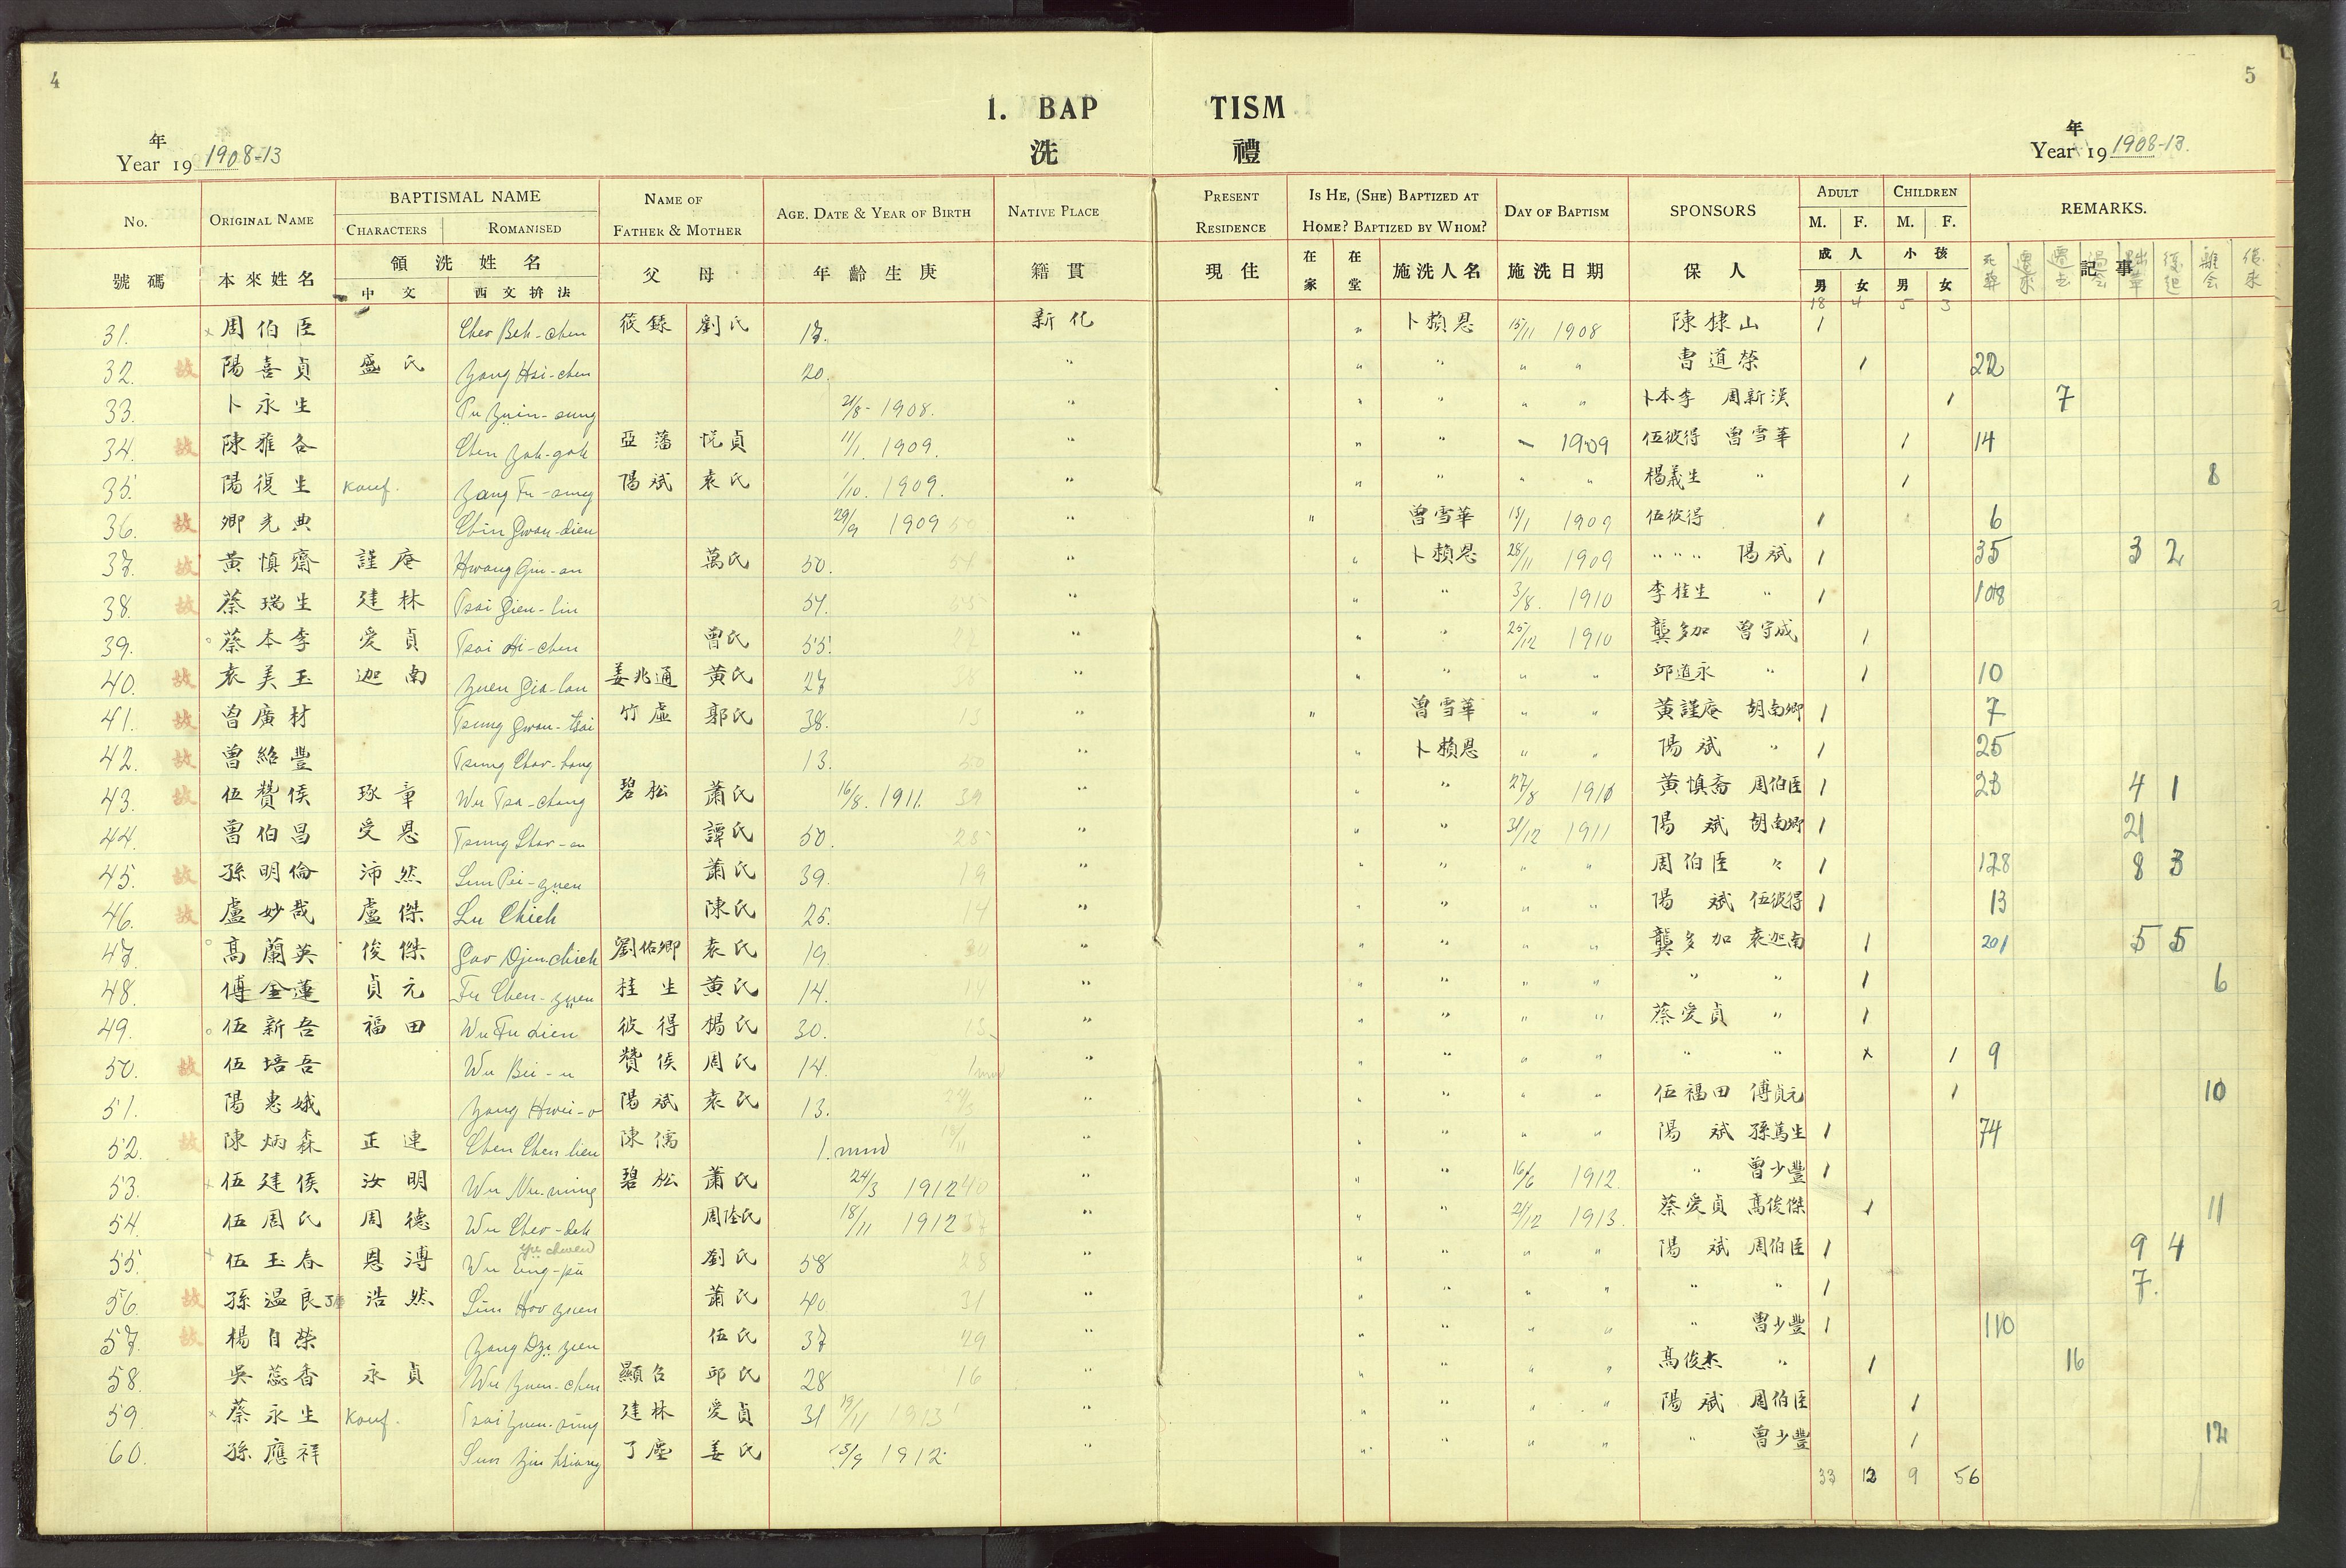 4
5
1. BAP TISM
洗 禮
年
Year 19 1908-13
年
Year 19 1908-13.
No. ORIGINAL NAME BAPTISMAL NAME NAME OF FATHER & MOTHER AGE. DATE & YEAR OF BIRTH NATIVE PLACE PRESENT RESIDENCE IS HE, (SHE) BAPTIZED AT HOME? BAPTIZED BY WHOM? DAY OF BAPTISM SPONSORS ADULT CHILDREN REMARKS.
CHARACTERS ROMANISED M. F. M. F.
號碼 本來姓名 領洗姓名 父 母 年齡生庚 籍貫 現住 在家 在堂 施洗人名 施洗日期 保人 成人 小孩 記事
中文 西文拚法 男 女 男 女
18 4 5 3
31. 周伯臣 Cheo Beh-chen 筱錄 劉氏 17. 新化 " 卜賴恩 15/11 1908 陳棣山 1
32. 故 陽喜貞 盛氏 Yang Hsi-chen 20. " " " " " 曹道榮 1 22
33. 卜永生 21/8- 1908. " " " " " 卜本李 周新漢 1 7
34. 故 陳雅各 Chen Yah-goh 亞藩 悦貞 11/1. 1909. " " " 1909 伍彼得 曾雪華 1 14
35. 陽復生 Konf. Yang Fu-sung 陽斌 袁氏 1/10. 1909. " " " " " 楊義生 " 1 8
36. 故 卿光典 29/9 1909 " " 曾雪華 1909 伍彼得 1 6
37. 故 黃慎齋 謹庵 Hwang Gin-an 萬氏 50. " " 卜賴恩 28/11 1909 " " " 陽斌 1 35 3 2
38. 故 蔡瑞生 建林 Tsai Gien-lin 57. " " " 3/8. 1910 李桂生 " 1 108
39. 蔡本李 爱貞 Tsai Ai-chen 曾氏 55. " " " 25/12 1910 龔多加 曾守成 1
40. 故 袁美玉 迦南 姜兆通 黃氏 27 " " " " " 邱道永 " 1 10
41. 故 曾廣材 Tsung Gwan-tsai 竹虛 郭氏 38. " " 曾雪華 " " 黃謹庵 胡南卿 1 7
42. 故 曾紹豐 13. " " 卜賴恩 " " 陽斌 " 1 25
43. 故 伍贊侯 琢章 Wu Tso-chang 碧松 蕭氏 16/8. 1911. " " 27/8 黃慎斋 周伯臣 1 4 1
44. 曾伯昌 受恩 譚氏 50. " " " 31/12 1911 陽斌 胡南卿 1 21
45. 故 孫明倫 沛然 Sun Pei-yuen 蕭氏 39. " " " " " 周伯臣 " 1 128 8 3
46. 故 盧妙哉 盧傑 Lu Chieh 陳氏 25. " " " " " 陽斌 伍彼得 1 13
47. 高蘭英 俊傑 劉佑卿 袁氏 19 " " " " " 龔多加 袁迦南 1 201 5 5
48. 傅金蓮 貞元 Fu Chen-yuen 桂生 黃氏 14. " " " " " " " 1 6
49. 伍新吾 福田 Wu Fu dien 彼得 楊氏 30. " " " " " 蔡爱貞 " 1
50. 故 伍培吾 Wu Bei-u 贊侯 周氏 14. " " " " " " " 1 9
51. 陽惠娥 Yang Hwei-o 陽斌 袁氏 13. " " " " " 伍福田 傅貞元 1 10
52. 故 陳炳森 正連 Chen Chen lien 陳儒 " " " " " 陽斌 孫篤生 1 74
53. 伍建侯 汝明 碧松 蕭氏 24/3 1912 " " " 16/6 1912. " 曾少豐 1
54. 伍周氏 周德 Wu Cheo-deh 18/11 1912 " " " 21/12 1913. 蔡爱貞 高俊傑 1 11
55. 伍玉春 恩溥 yü chwen 劉氏 58 " " " " " 陽斌 周伯臣 1 9 4
56. 故 孫温良 浩然 Sün Hao yuen 蕭氏 40. " " " " " " " 1 7.
57. 故 楊自榮 伍氏 37 " " " " " " 曾少豐 1 110
58. 吳蕊香 永貞 Wu Yuen-chen 邱氏 28 " " " " " 高俊杰 " 1 16
59. 蔡永生 Konf. Tsai Yuen-sung 建林 爱貞 31 19/11 1913 " " " " " 陽斌 周伯臣 1
60. 孫應祥 了塵 姜氏 1912. " " " " " " 曾少豐 1 12
33 12 9 56